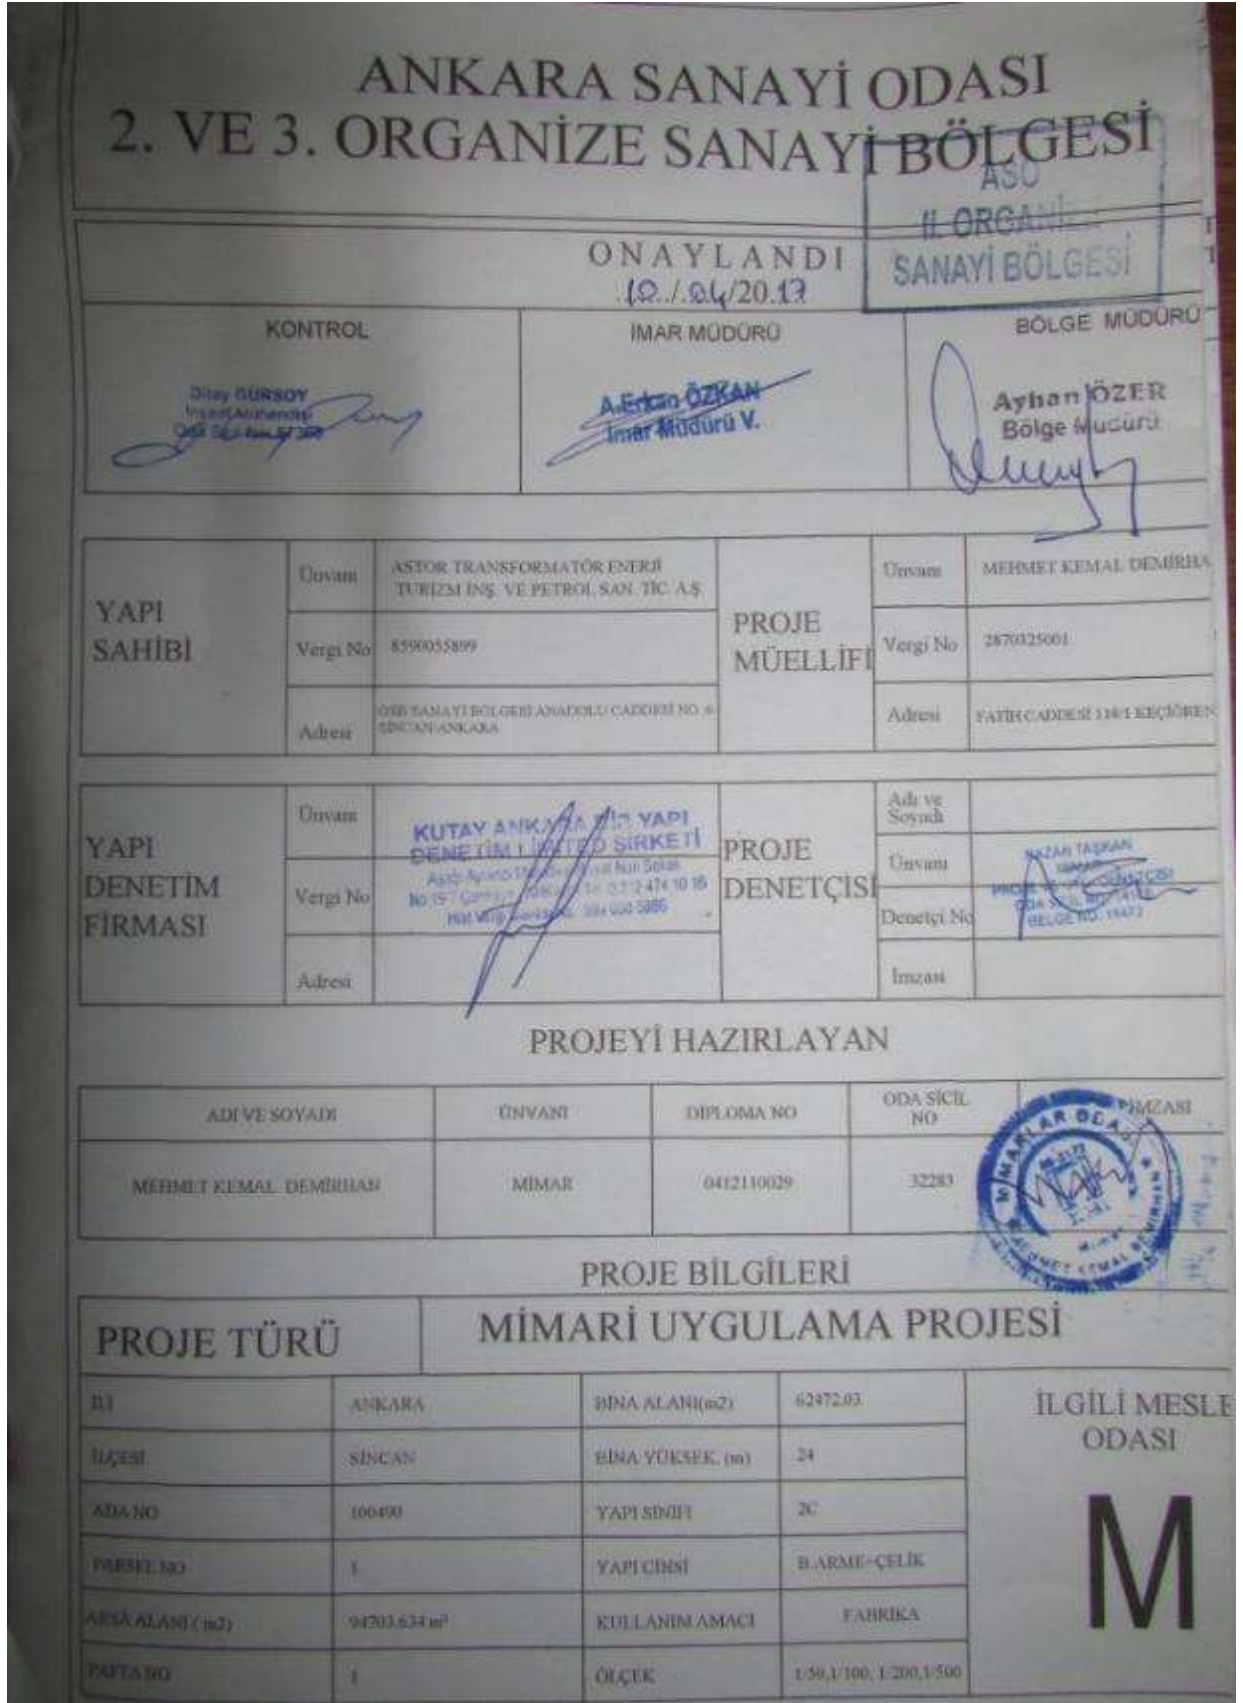 ANKARA SANAYİ ODASI
2. VE 3. ORGANİZE SANAYİ BÖLGESİ
ASO
II. ORGANİZE
SANAYİ BÖLGESİ
ONAYLANDI
10./.04/20.17
KONTROL
İMAR MÜDÜRÜ
BÖLGE MÜDÜRÜ
GÜRSOY
A.Erkan ÖZKAN
İmar Müdürü V.
Ayhan ÖZER
Bölge Müdürü
YAPI
SAHİBİ
Ünvanı
ASTOR TRANSFORMATÖR ENERJİ
TURİZM İNŞ. VE PETROL SAN. TİC. A.Ş.
Vergi No
8590055899
Adresi
OSB SANAYİ BÖLGESİ ANADOLU CADDESİ NO :6
SİNCAN/ANKARA
PROJE
MÜELLİFİ
Ünvanı
MEHMET KEMAL DEMİRHA
Vergi No
2870325001
Adresi
FATİH CADDESİ 118/1 KEÇİÖREN
YAPI
DENETİM
FİRMASI
Ünvanı
Vergi No
Adresi
KUTAY ANKARA BİR YAPI
DENETİM LİMİTED ŞİRKETİ
474 10 16
PROJE
DENETÇİSİ
Adı ve
Soyadı
Ünvanı
Denetçi No
İmzası
TAŞKAN
BELGE NO:
PROJEYİ HAZIRLAYAN
ADI VE SOYADI
ÜNVANI
DİPLOMA NO
ODA SİCİL
NO
İMZASI
MEHMET KEMAL DEMİRHAN
MİMAR
0412110029
32283
MİMARLAR ODASI
MEHMET KEMAL DEMİRHAN
PROJE BİLGİLERİ
PROJE TÜRÜ
MİMARİ UYGULAMA PROJESİ
İLİ
ANKARA
BİNA ALANI(m2)
62472.03
İLÇESİ
SİNCAN
BİNA YÜKSEK. (m)
24
ADA NO
100490
YAPI SINIFI
2C
PARSEL NO
1
YAPI CİNSİ
B.ARME-ÇELİK
ARSA ALANI ( m2)
94703.634 m²
KULLANIM AMACI
FABRİKA
PAFTA NO
1
ÖLÇEK
1/50,1/100, 1/200,1/500
İLGİLİ MESLE
ODASI
M